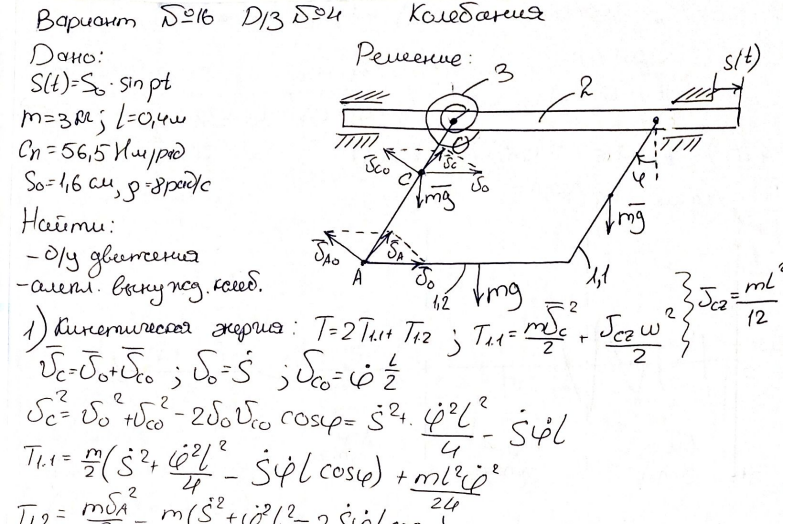 Вариант №16 D/З №4 Колебания
Дано:
S(t)=S₀·sin pt
m=3кг; l=0,4м
Cп=56,5 Нм/рад
S₀=1,6 см, p=8рад/с
Найти:
- д/у движения
-ампл. вынужд. колеб.
Решение:
3
2
S(t)
O
v̄c₀
v̄c
v̄₀
C
mḡ
φ
mḡ
1,1
v̄A₀
v̄A
v̄₀
A
1,2
mg
1) Кинетическая энергия: T=2T₁.₁+T₁.₂ ; T₁.₁= mv̄c²/2 + Jcz ω²/2 } Jcz= ml²/12
v̄c=v̄₀+v̄c₀ ; v₀=Ṡ ; vc₀=φ̇ l/2
vc²= v₀²+vc₀²-2v₀vc₀ cosφ= Ṡ²+ φ̇²l²/4 - Ṡφ̇l
T₁.₁= m/2(Ṡ²+ φ̇²l²/4 - Ṡφ̇l cosφ) + ml²φ̇²/24
T₁.₂= mvA²